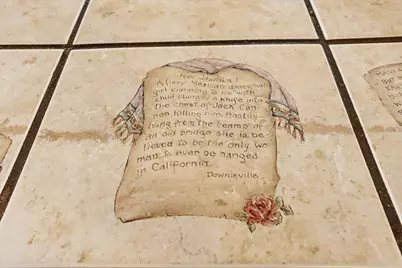 Poor Juanita!
A fiery Mexican dance hall
girl claiming to be with
child plunged a knife into
the chest of Jack Can
non, killing him. Hastily
hung from the beams of
an old bridge she is be
lieved to be the only wo
man to ever be hanged
in California.
Downieville